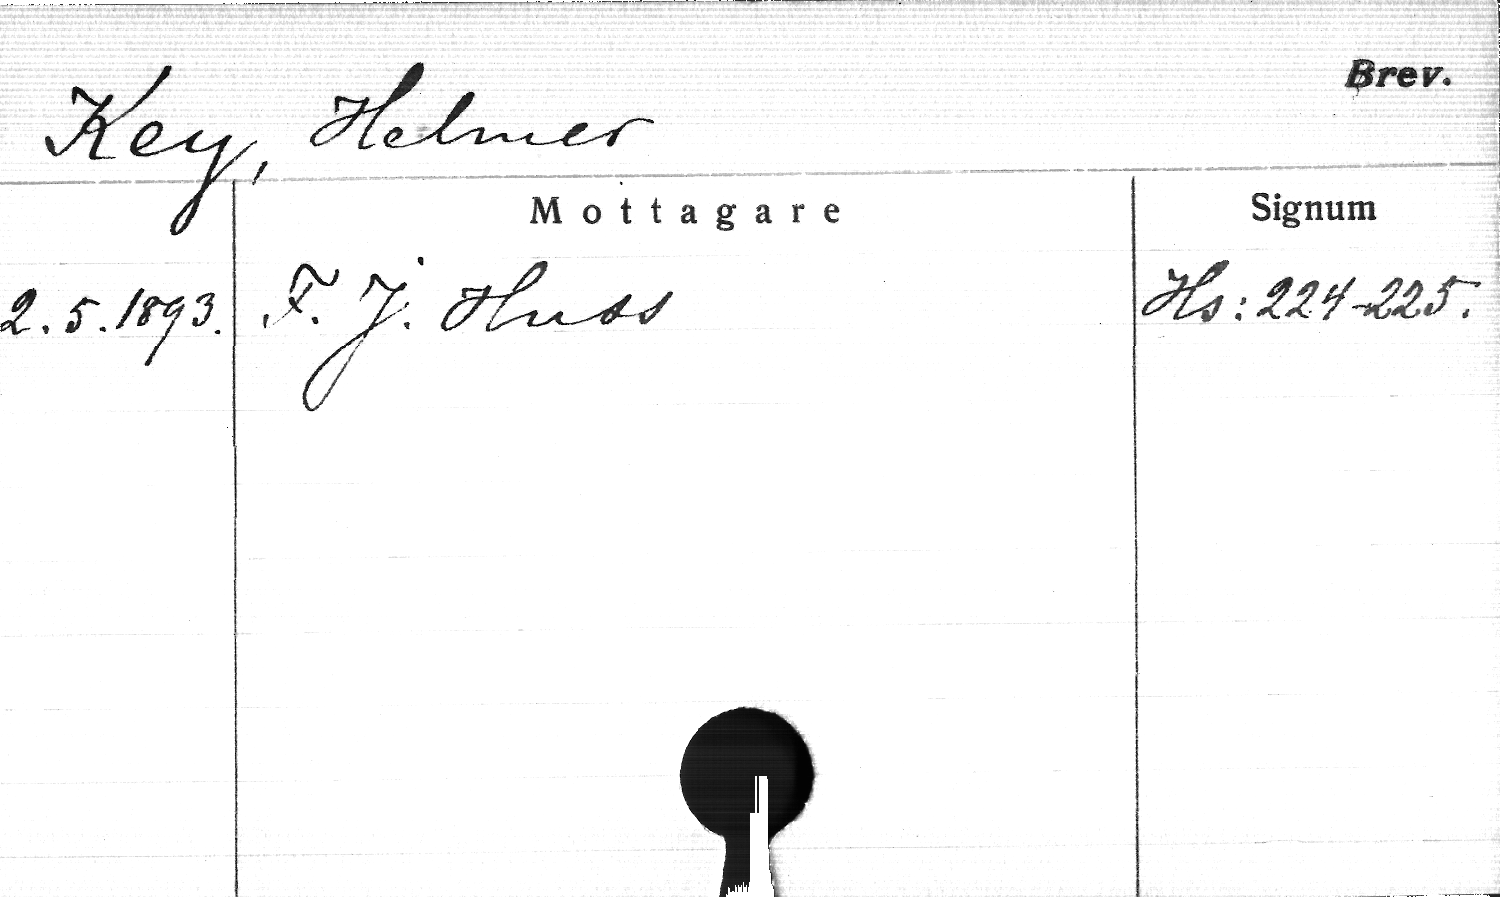 Brev.
Key, Helmer
Mottagare
Signum
2.5.1893. F. J. Huss Hs: 224-225.